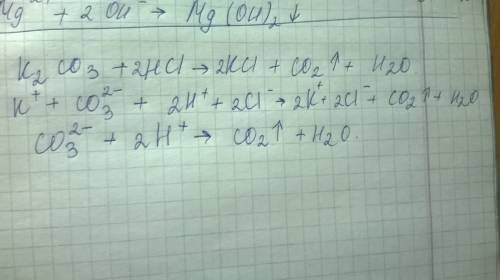 Mg²⁺ + 2OH⁻ → Mg(OH)₂↓
K₂CO₃ + 2HCl → 2KCl + CO₂↑ + H₂O
K⁺ + CO₃²⁻ + 2H⁺ + 2Cl⁻ → 2K⁺ + 2Cl⁻ + CO₂↑ + H₂O
CO₃²⁻ + 2H⁺ → CO₂↑ + H₂O.